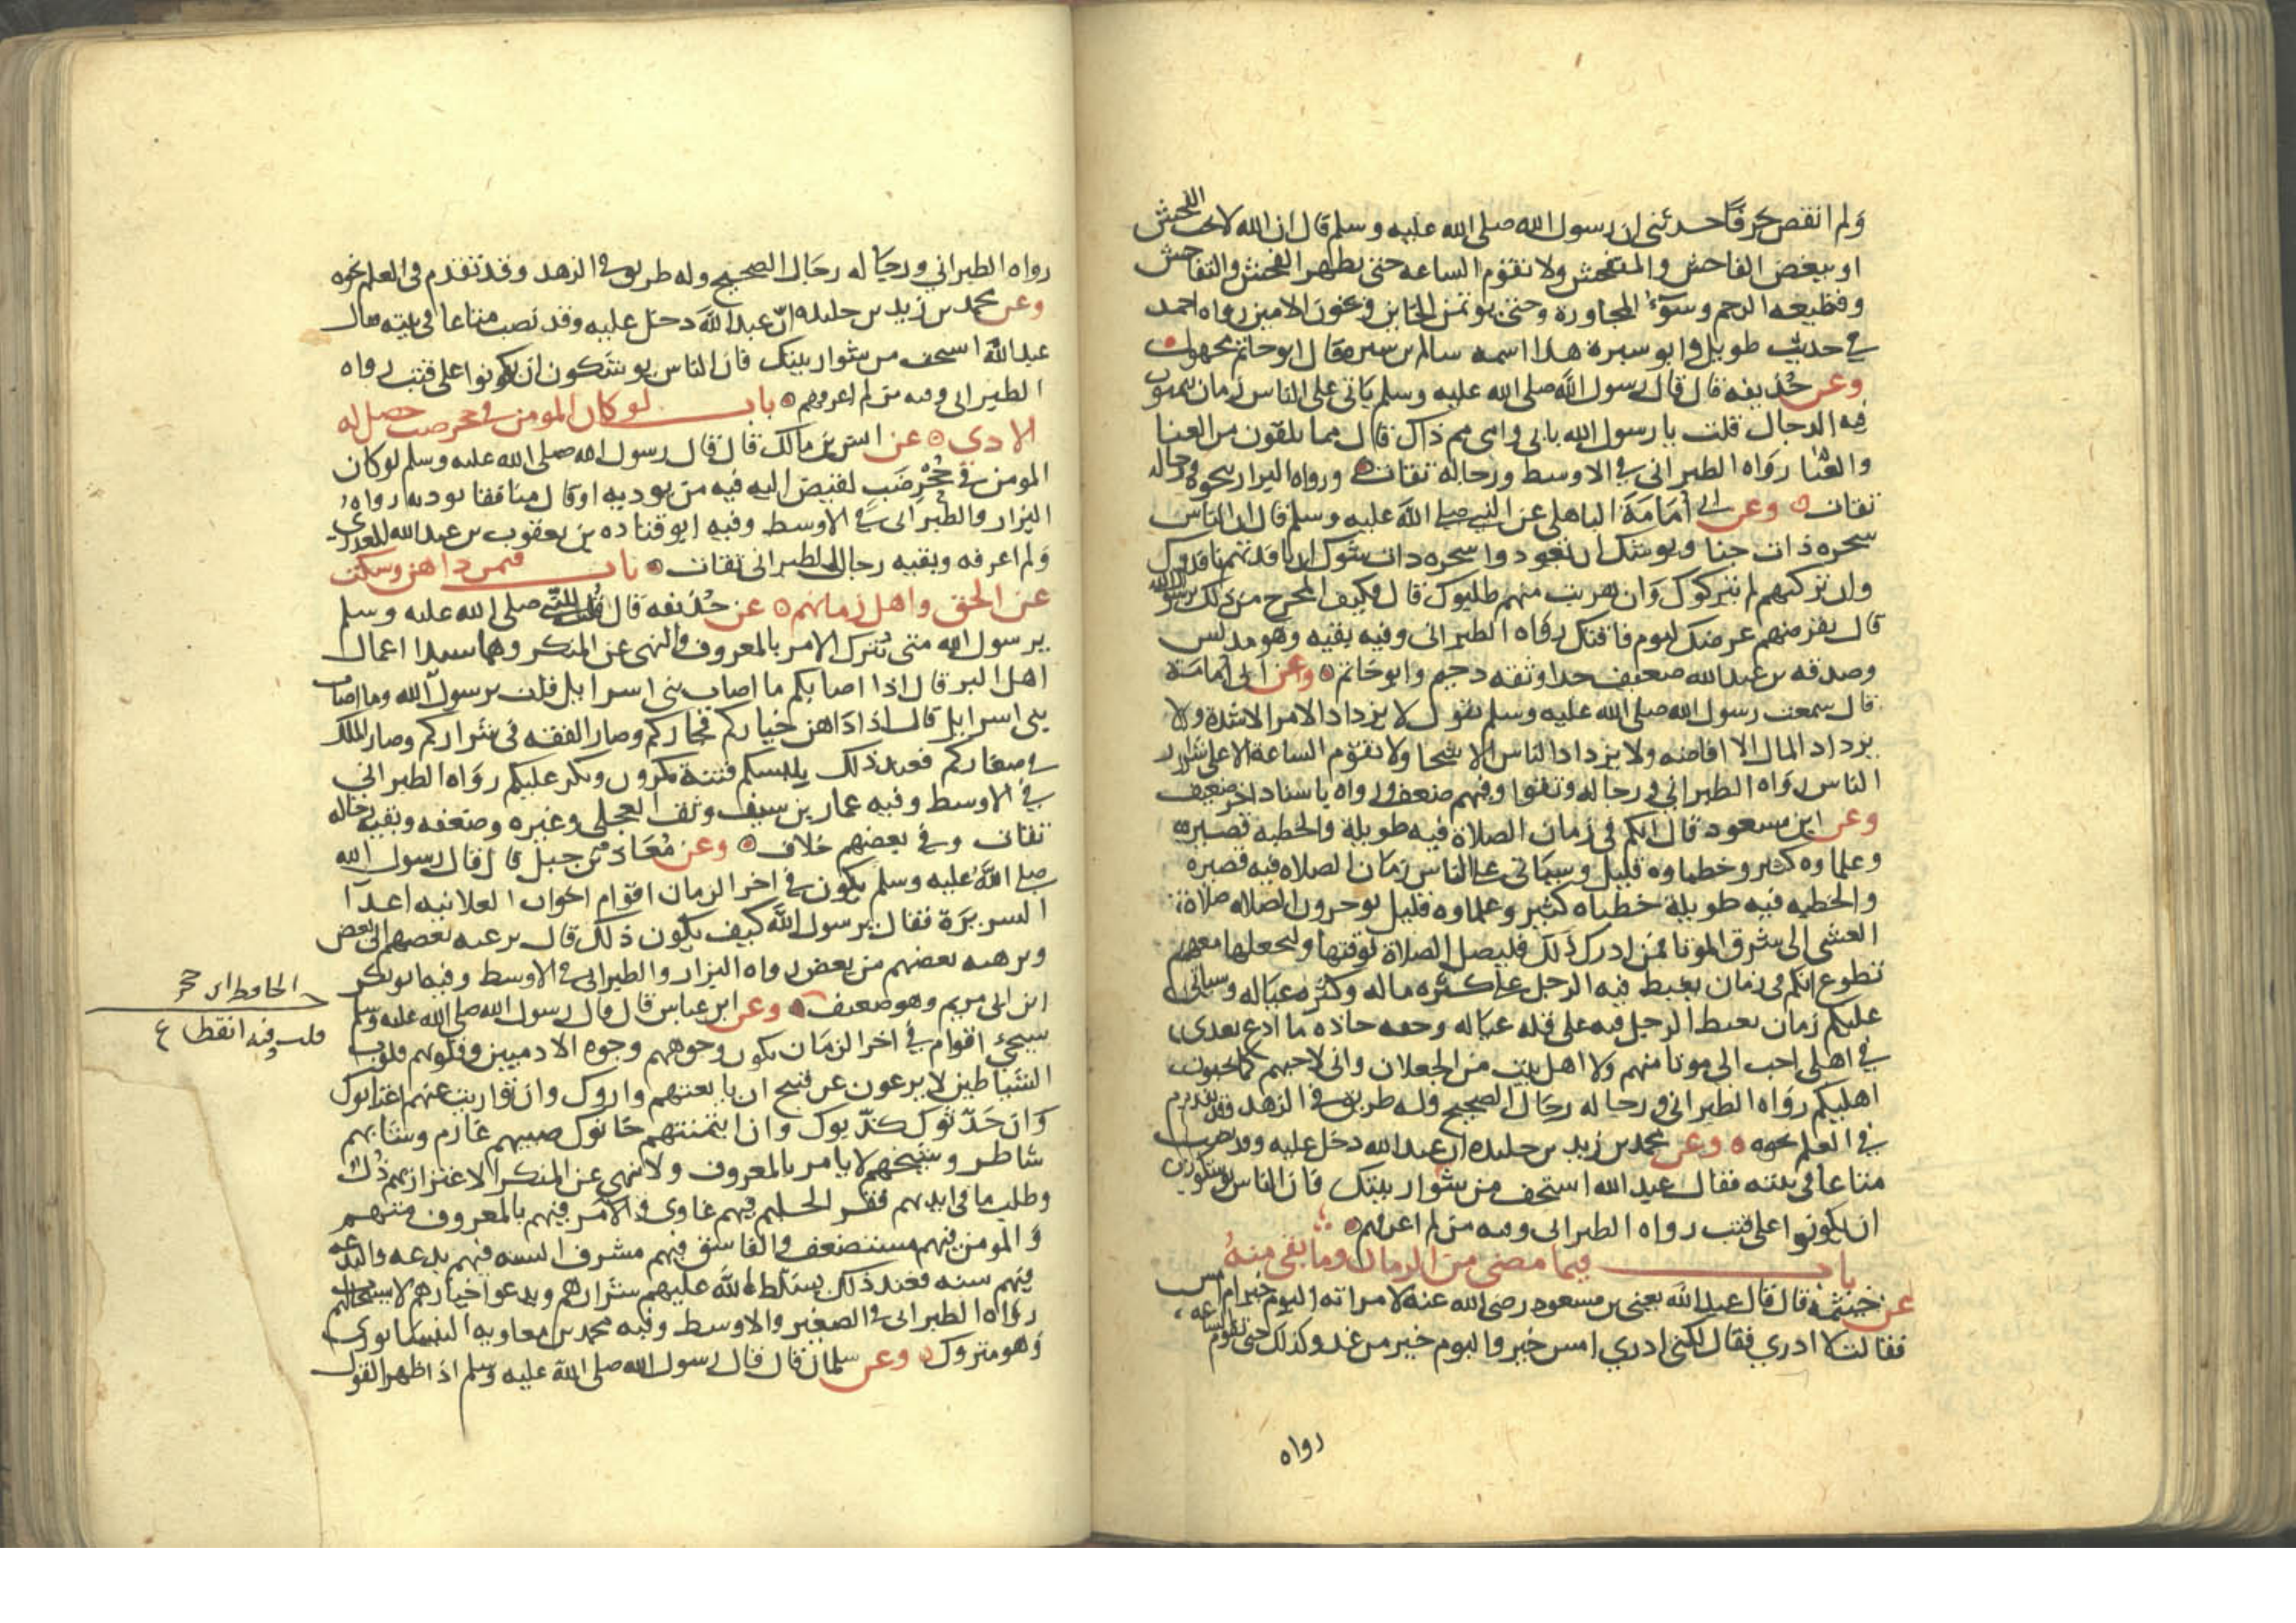 ولم انقص حرفا حدثني ان رسول الله صلى الله عليه وسلم قال ان الله لا يحب الفحش
او يبغض الفاحش والمتفحش ولا تقوم الساعه حتى يظهر الفحش والتفاحش
وقطيعه الرحم وسوء المجاورة وحتى يؤتمن الخاين ويخون الامين رواه احمد
في حديث طويل وابو سبرة هذا اسمه سالم بن سبرة قال ابو حاتم مجهول
وعن حذيفه قال قال رسول الله صلى الله عليه وسلم ياتى على الناس زمان يتمنون
فيه الدجال قلت يا رسول الله بابى وامى مم ذاك قال مما يلقون من العنا
والعنا رواه الطبرانى في الاوسط ورجاله ثقات ورواه البزار بنحوه ورجاله
ثقات وعن ابى أمامة الباهلى عن النبي صلى الله عليه وسلم قال ان الناس
شجره ذات جنا ويوشك ان تعود وا شجره ذات شوك ان ناقدتهم ناقدوك
وان تركتهم لم يتركوك وان هربت منهم طلبوك قال فكيف المخرج من ذلك يرسول الله
قال تقرضهم عرضك ليوم فاقتك رواه الطبرانى وفيه بقيه وهو مدلس
وصدقه بن عبد الله ضعيف جدا وثقه دحيم وابو حاتم وعن ابى أمامة
قال سمعت رسول الله صلى الله عليه وسلم يقول لا يزداد الامر الا شدة ولا
يزداد المال الا افاضه ولا يزداد الناس الا شحا ولا تقوم الساعة الا على شرار
الناس رواه الطبرانى ورجاله وثقوا وفيهم ضعف ورواه باسناد اخر ضعيف
وعن ابن مسعود قال انكم فى زمان الصلاة فيه طويلة والخطبه قصيره
وعلماوه كثير وخطباوه قليل وسياتى على الناس زمان الصلاه فيه قصيره
والخطبه فيه طويلة خطباه كثير وعلماوه قليل يوخرون الصلاه صلاة
العشى الى شرق الموتا فمن ادرك ذلك فليصل الصلاة لوقتها وليجعلها معهم
تطوع انكم فى زمان يغبط فيه الرجل على كثره ماله وكثره عياله وسياتى
عليكم زمان يغبط الرجل فيه على قله عياله وخفه حاذه ما ادع بعدى
في اهلى احب الى موتا منهم ولا اهل بيت من الجعلان وانى لاحبهم كما تحبون
اهليكم رواه الطبرانى ورجاله رجال الصحيح وله طريق في الزهد وقد تقدم
في العلم نحوه وعن محمد بن زيد بن خليده ان عبد الله دخل عليه وقد نصب
متاعا فى بيته فقال عبد الله استخف من شوار بيتك فان الناس يوشكون
ان يكونوا على قتب رواه الطبرانى وفيه من لم اعرفهم
باب فيما مضى من الزمان وما بقى منه
عن خيثمة قال قال عبد الله يعنى بن مسعود رضى الله عنه لامراته اليوم خير ام امس
فقالت لا ادري فقال لكنى ادري امس خير من اليوم واليوم خير من غد وكذلك حتى تقوم الساعه
رواه
رواه الطبراني ورجاله رجال الصحيح وله طريق في الزهد وقد تقدم فى العلم نحوه
وعن محمد بن زيد بن خليده ان عبد الله دخل عليه وقد نصب متاعا فى بيته فقال
عبد الله استخف من شوار بيتك فان الناس يوشكون ان يكونوا على قتب رواه
الطبرانى وفيه من لم اعرفهم باب لو كان المومن في جحر ضب حصل له
الاذى عن انس بن مالك قال قال رسول الله صلى الله عليه وسلم لو كان
المومن في جُحْر ضَب لقيض اليه فيه من يوذيه او قال منافقا يوذيه رواه
البزار والطبرانى في الاوسط وفيه ابو قتاده بن يعقوب بن عبد الله العذرى
ولم اعرفه وبقيه رجال الطبرانى ثقات باب فيمن داهن وسكت
عن الحق واهل زمانهم عن حذيفه قال قلت للنبى صلى الله عليه وسلم
يرسول الله متى يترك الامر بالمعروف والنهى عن المنكر وهما سيدا اعمال
اهل البر قال اذا اصابكم ما اصاب بنى اسرايل قلت يرسول الله وما اصاب
بنى اسرايل قال اذا داهن خياركم فجاركم وصار الفقه فى شراركم وصار الملك
في صغاركم فعند ذلك يلبسكم فتنة تكرون ويكر عليكم رواه الطبرانى
في الاوسط وفيه عمار بن سيف وثقه العجلى وغيره وضعفه وبقيه رجاله
ثقات وفى بعضهم خلاف وعن مُعَاذ بن جبل قال قال رسول الله
صلى الله عليه وسلم يكون في اخر الزمان اقوام اخوان العلانيه اعدآ
السريرَة فقال يرسول الله كيف يكون ذلك قال برغبه بعضهم الى بعض
وبرهبه بعضهم من بعض رواه البزار والطبرانى في الاوسط وفيه ابو بكر
ابن ابى مريم وهو ضعيف وعن ابن عباس قال قال رسول الله صلى الله عليه وسلم
سيجئ اقوام في اخر الزمان يكون وجوههم وجوه الادميين وقلوبهم قلوب
الشياطين لا يرعون عن قبيح ان بايعتهم واروك وان تواريت عنهم اغتابوك
وان حَدّثوك كذّبوك وان ايتمنتهم خانوك صبيهم عارم وشابهم
شاطر وشيخهم لا يامر بالمعروف ولا ينهى عن المنكر الاعتزاز بهم ذُل
وطلب ما فى ايديهم فقر الحليم فيهم غاوى والآمر فيهم بالمعروف متهم
والمومن فيهم مستضعف والفاسق فيهم مشرف السنه فيهم بدعه والبدعه
فيهم سنه فعند ذلك يسلط الله عليهم شرارهم ويدعوا خيارهم لا يستجاب لهم
رواه الطبرانى في الصغير والاوسط وفيه محمد بن معاويه النيسابورى
وهو متروك وعن سلمان قال قال رسول الله صلى الله عليه وسلم اذا ظهر القول
الحافظ ابن حجر
قلت وفيه انقطاع